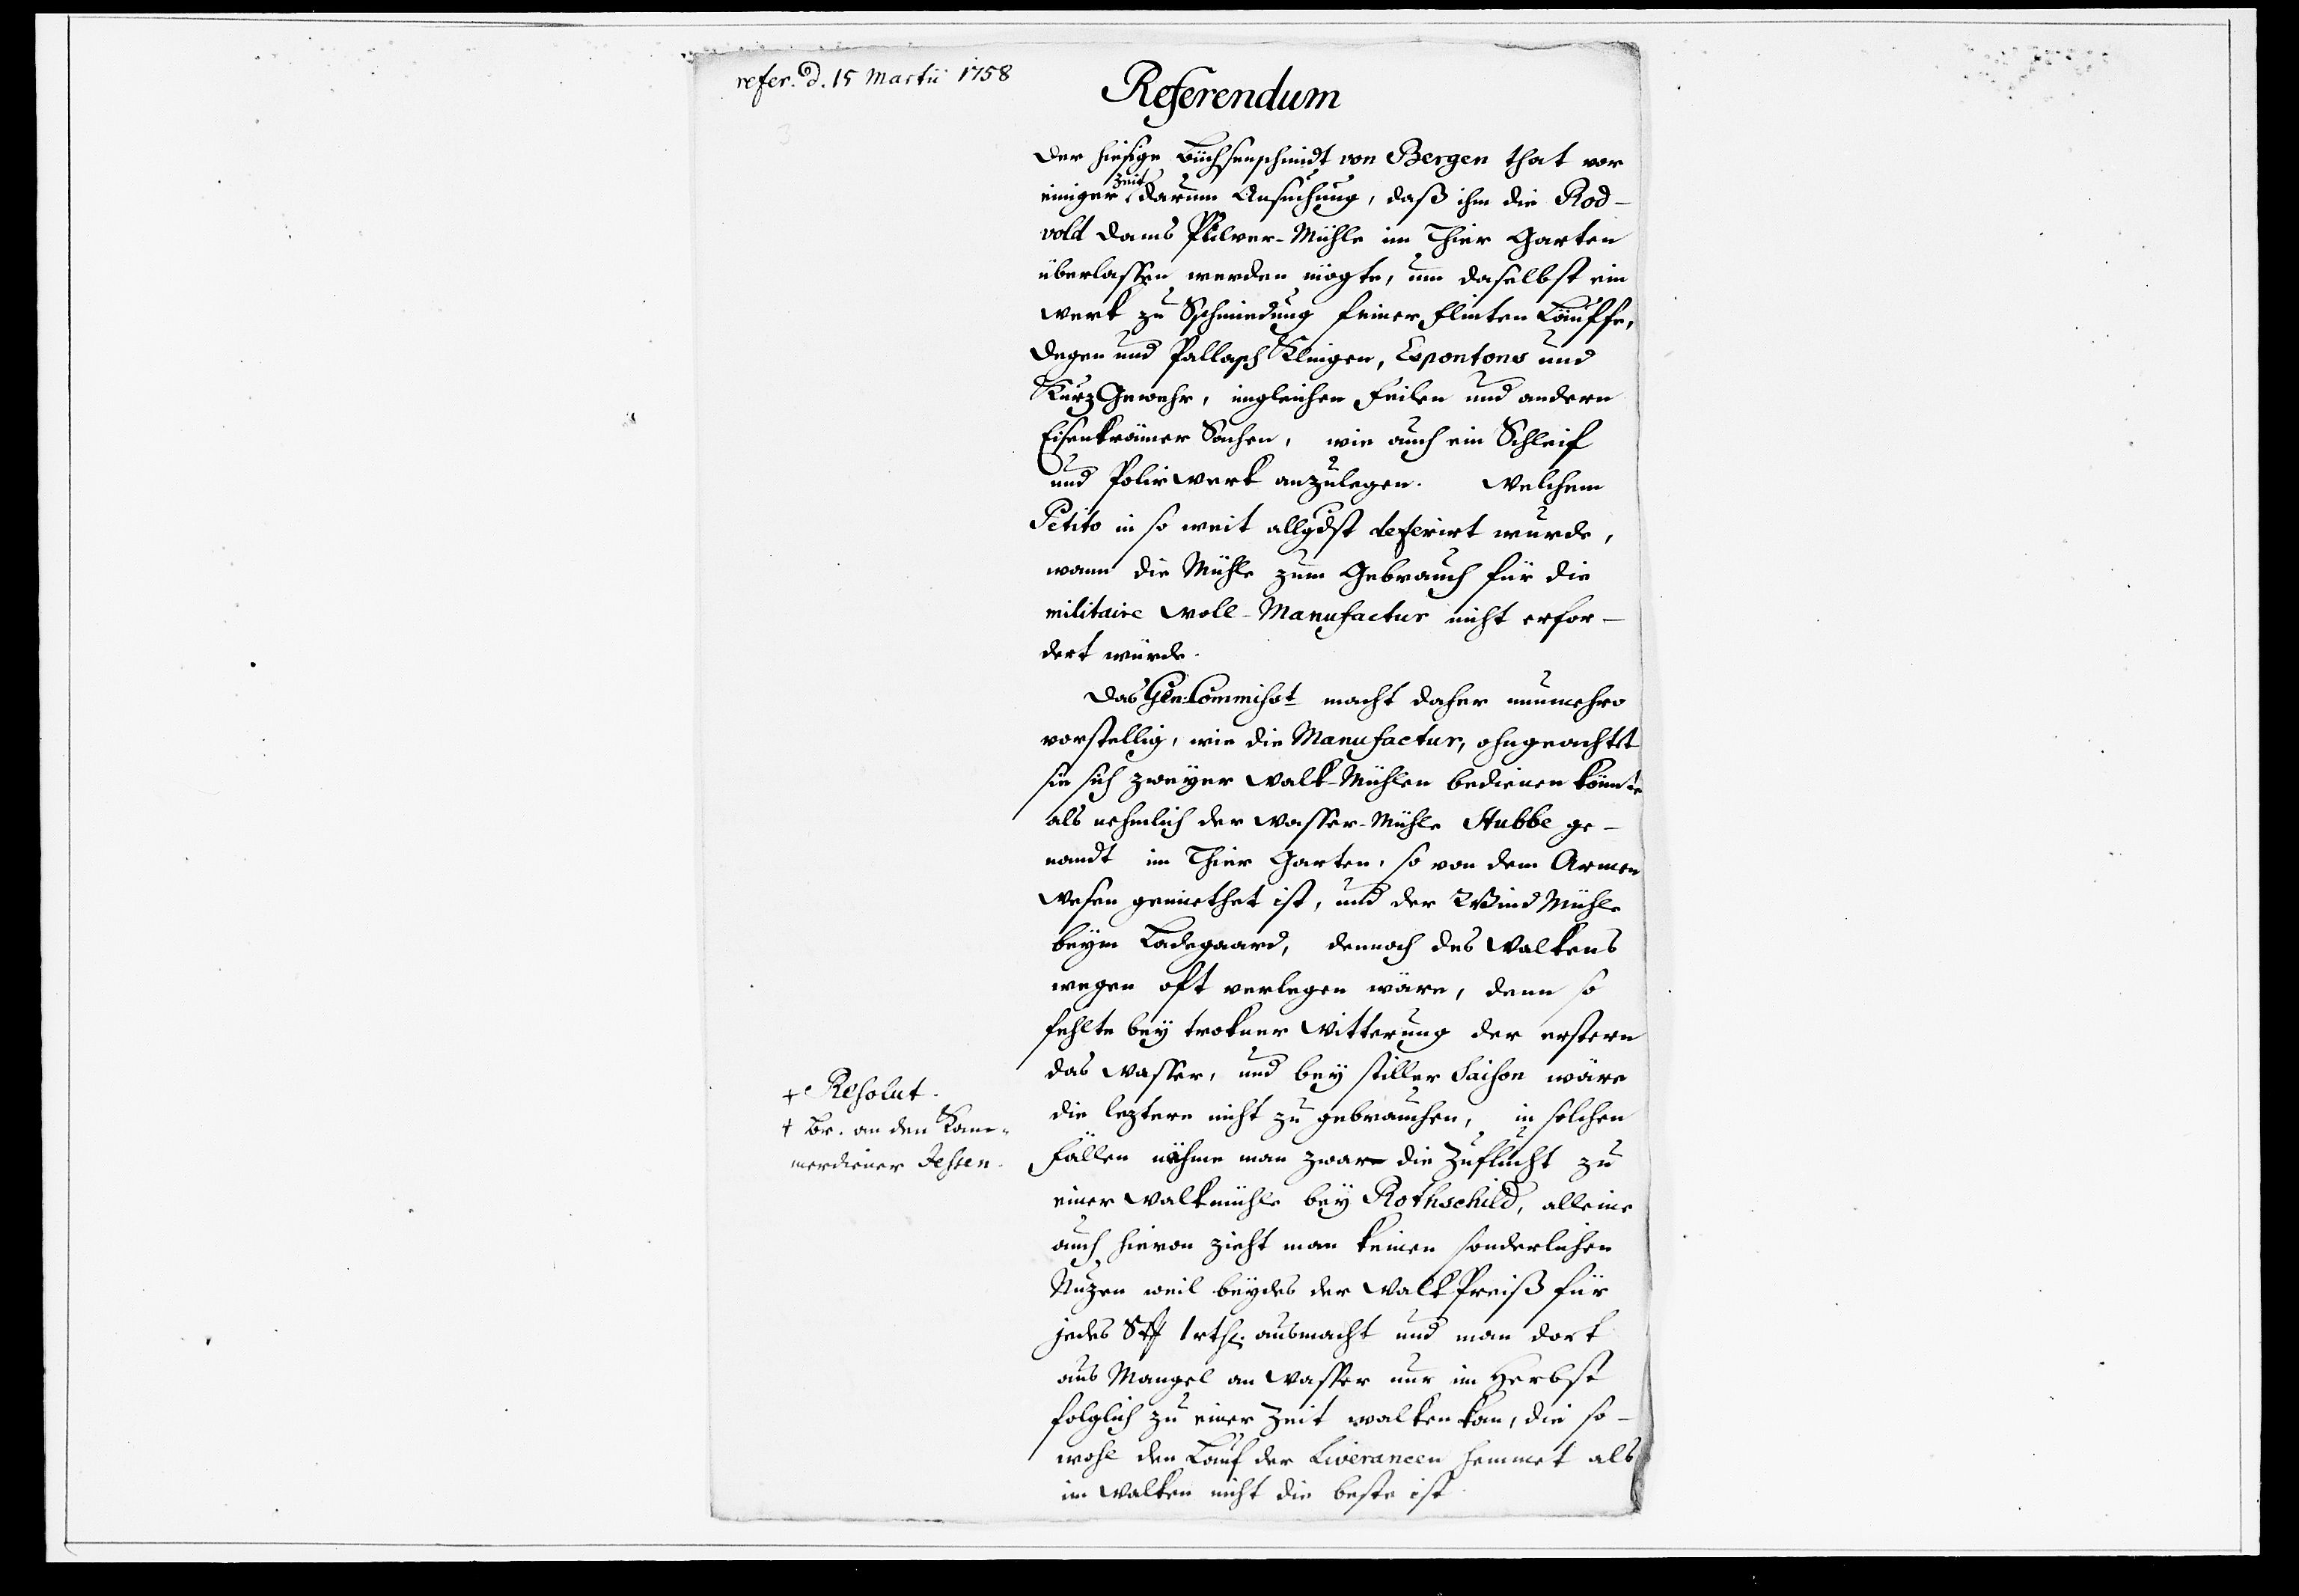 refer. d. 15 Martii 1758
Referendum
Der hiesige Büchsenschmidt von Bergen that vor
einiger Zeit darum Ansuchung, daß ihm die Rod-
vold Dams Pulver-Mühle im Thier Garten
überlassen werden mögte, um daselbst ein
Werk zu Schmiedung feiner Flinten Läuffe,
Degen und Pallasch Klingen, Espontons und
Kurz Gewehr, imgleichen Feilen und andern
Eisenkrämer Sachen, wie auch ein Schleif
und Polirwerk anzulegen. Welchem
Petito in so weit allgdst deferirt wurde,
wann die Mühle zum Gebrauch für die
militaire Woll-Manufactur nicht erfor-
dert würde.
Das Gen: Commihst macht daher nunmehro
vorstellig, wie die Manufactur, ohngeachtet
sie sich zweyer Walk-Mühlen bedienen könnte
als nehmlich der Wasser-Mühle Stubbe ge-
nandt im Thier Garten, so von dem Armen
Wesen gemiethet ist, und der Wind Mühle
beym Ladegaard, dennoch des Walkens
wegen oft verlegen wäre, denn so
fehlte bey trokner Witterung der erstern
das Wasser, und bey stiller Saison wäre
die leztere nicht zu gebrauchen, in solchen
Fällen nähme man zwar die Zuflucht zu
einer Walkmühle bey Rothschild, alleine
auch hievon zieht man keinen sonderlichen
Nuzen weil beydes der Walk Preiß für
jedes 1 rthl. ausmacht und man dort
aus Mangel an Wasser nur im Herbst
folglich zu einer Zeit walken kan, die so-
wohl den Lauf der Liverancen hemmet als
im Walken nicht die beste ist.
+ Resolut.
† Br. an den Kam-
merdiener Jessen.